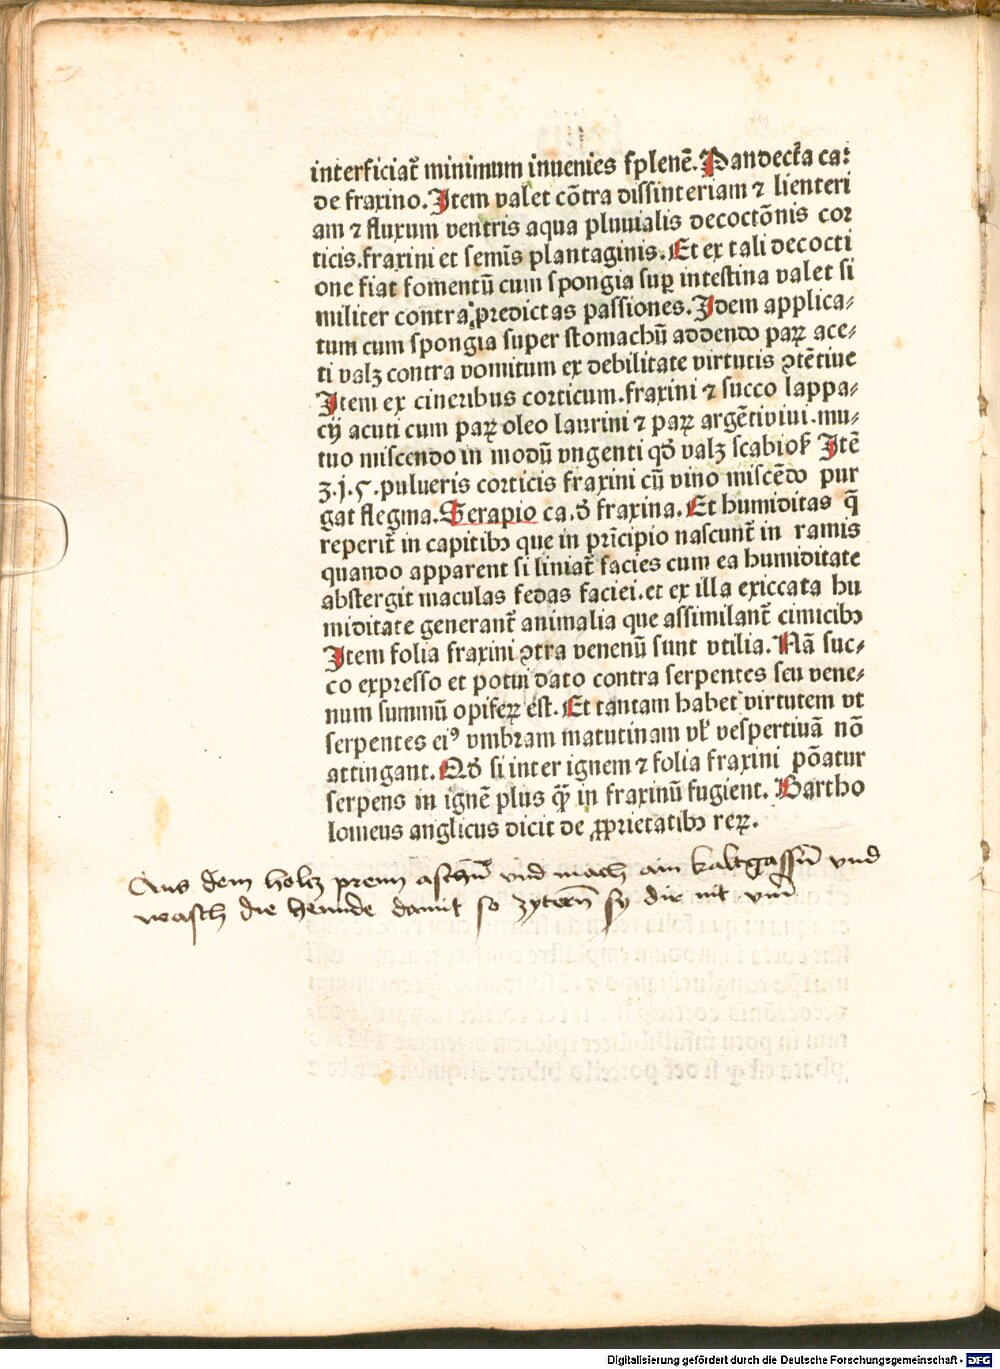 interficiat᷑ minimum inuenies ſplenē. Pandecta ca:
de fraxino. Item valet cōtra diſſinteriam ⁊ lienteri
am ⁊ fluxum ventris aqua pluuialis decoctōnis cor
ticis.fraxini et ſemīs plantaginis. Et ex tali decocti
one fiat fomentū cum ſpongia ſuꝑ inteſtina valet ſi
militer contra predictas paſſiones. Idem applica⸗
tum cum ſpongia ſuper ſtomachū addendo paꝝ ace⸗
ti valꝫ contra vomitum ex debilitate virtutis ꝯtētiue
Item ex cineribus corticum.fraxini ⁊ ſucco lappa⸗
cij acuti cum paꝝ oleo laurini ⁊ paꝝ argēti viui.mu⸗
tuo miſcendo in modū vngenti qđ valꝫ ſcabioſꝭ Itē
ʒ.j.ς.pulueris corticis fraxini cū vino miſcēdo pur
gat flegma. Serapio ca.đ fraxina. Et humiditas q̄
reperit᷑ in capitibꝫ que in prīcipio naſcunt᷑ in ramis
quando apparent ſi liniat᷑ facies cum ea humiditate
abſtergit maculas fedas faciei.et ex illa exiccata hu
miditate generant᷑ animalia que aſſimilant᷑ cimicibꝫ
Item folia fraxini ꝯtra venenū ſunt vtilia. Nā ſuc⸗
co expreſſo et potui dato contra ſerpentes ſeu vene⸗
num ſummū opifeꝝ eſt. Et tantam habet virtutem vt
ſerpentes eiꝰ vmbram matutinam vl̓ veſpertiuā nō
attingant. Qđ ſi inter ignem ⁊ folia fraxini pōatur
ſerpens in ignē plus ꝙ̄ in fraxinū fugient. Bartho
lomeus anglicus dicit de ꝓprietatibꝫ reꝝ.
Aus dem holtz prenn aschn̄ vnd mach ain kaltgassn̄ vnd
wasch die hennde damit so zytern̄ sy dir nit vm̄
Digitalisierung gefördert durch die Deutsche Forschungsgemeinschaft - DFG